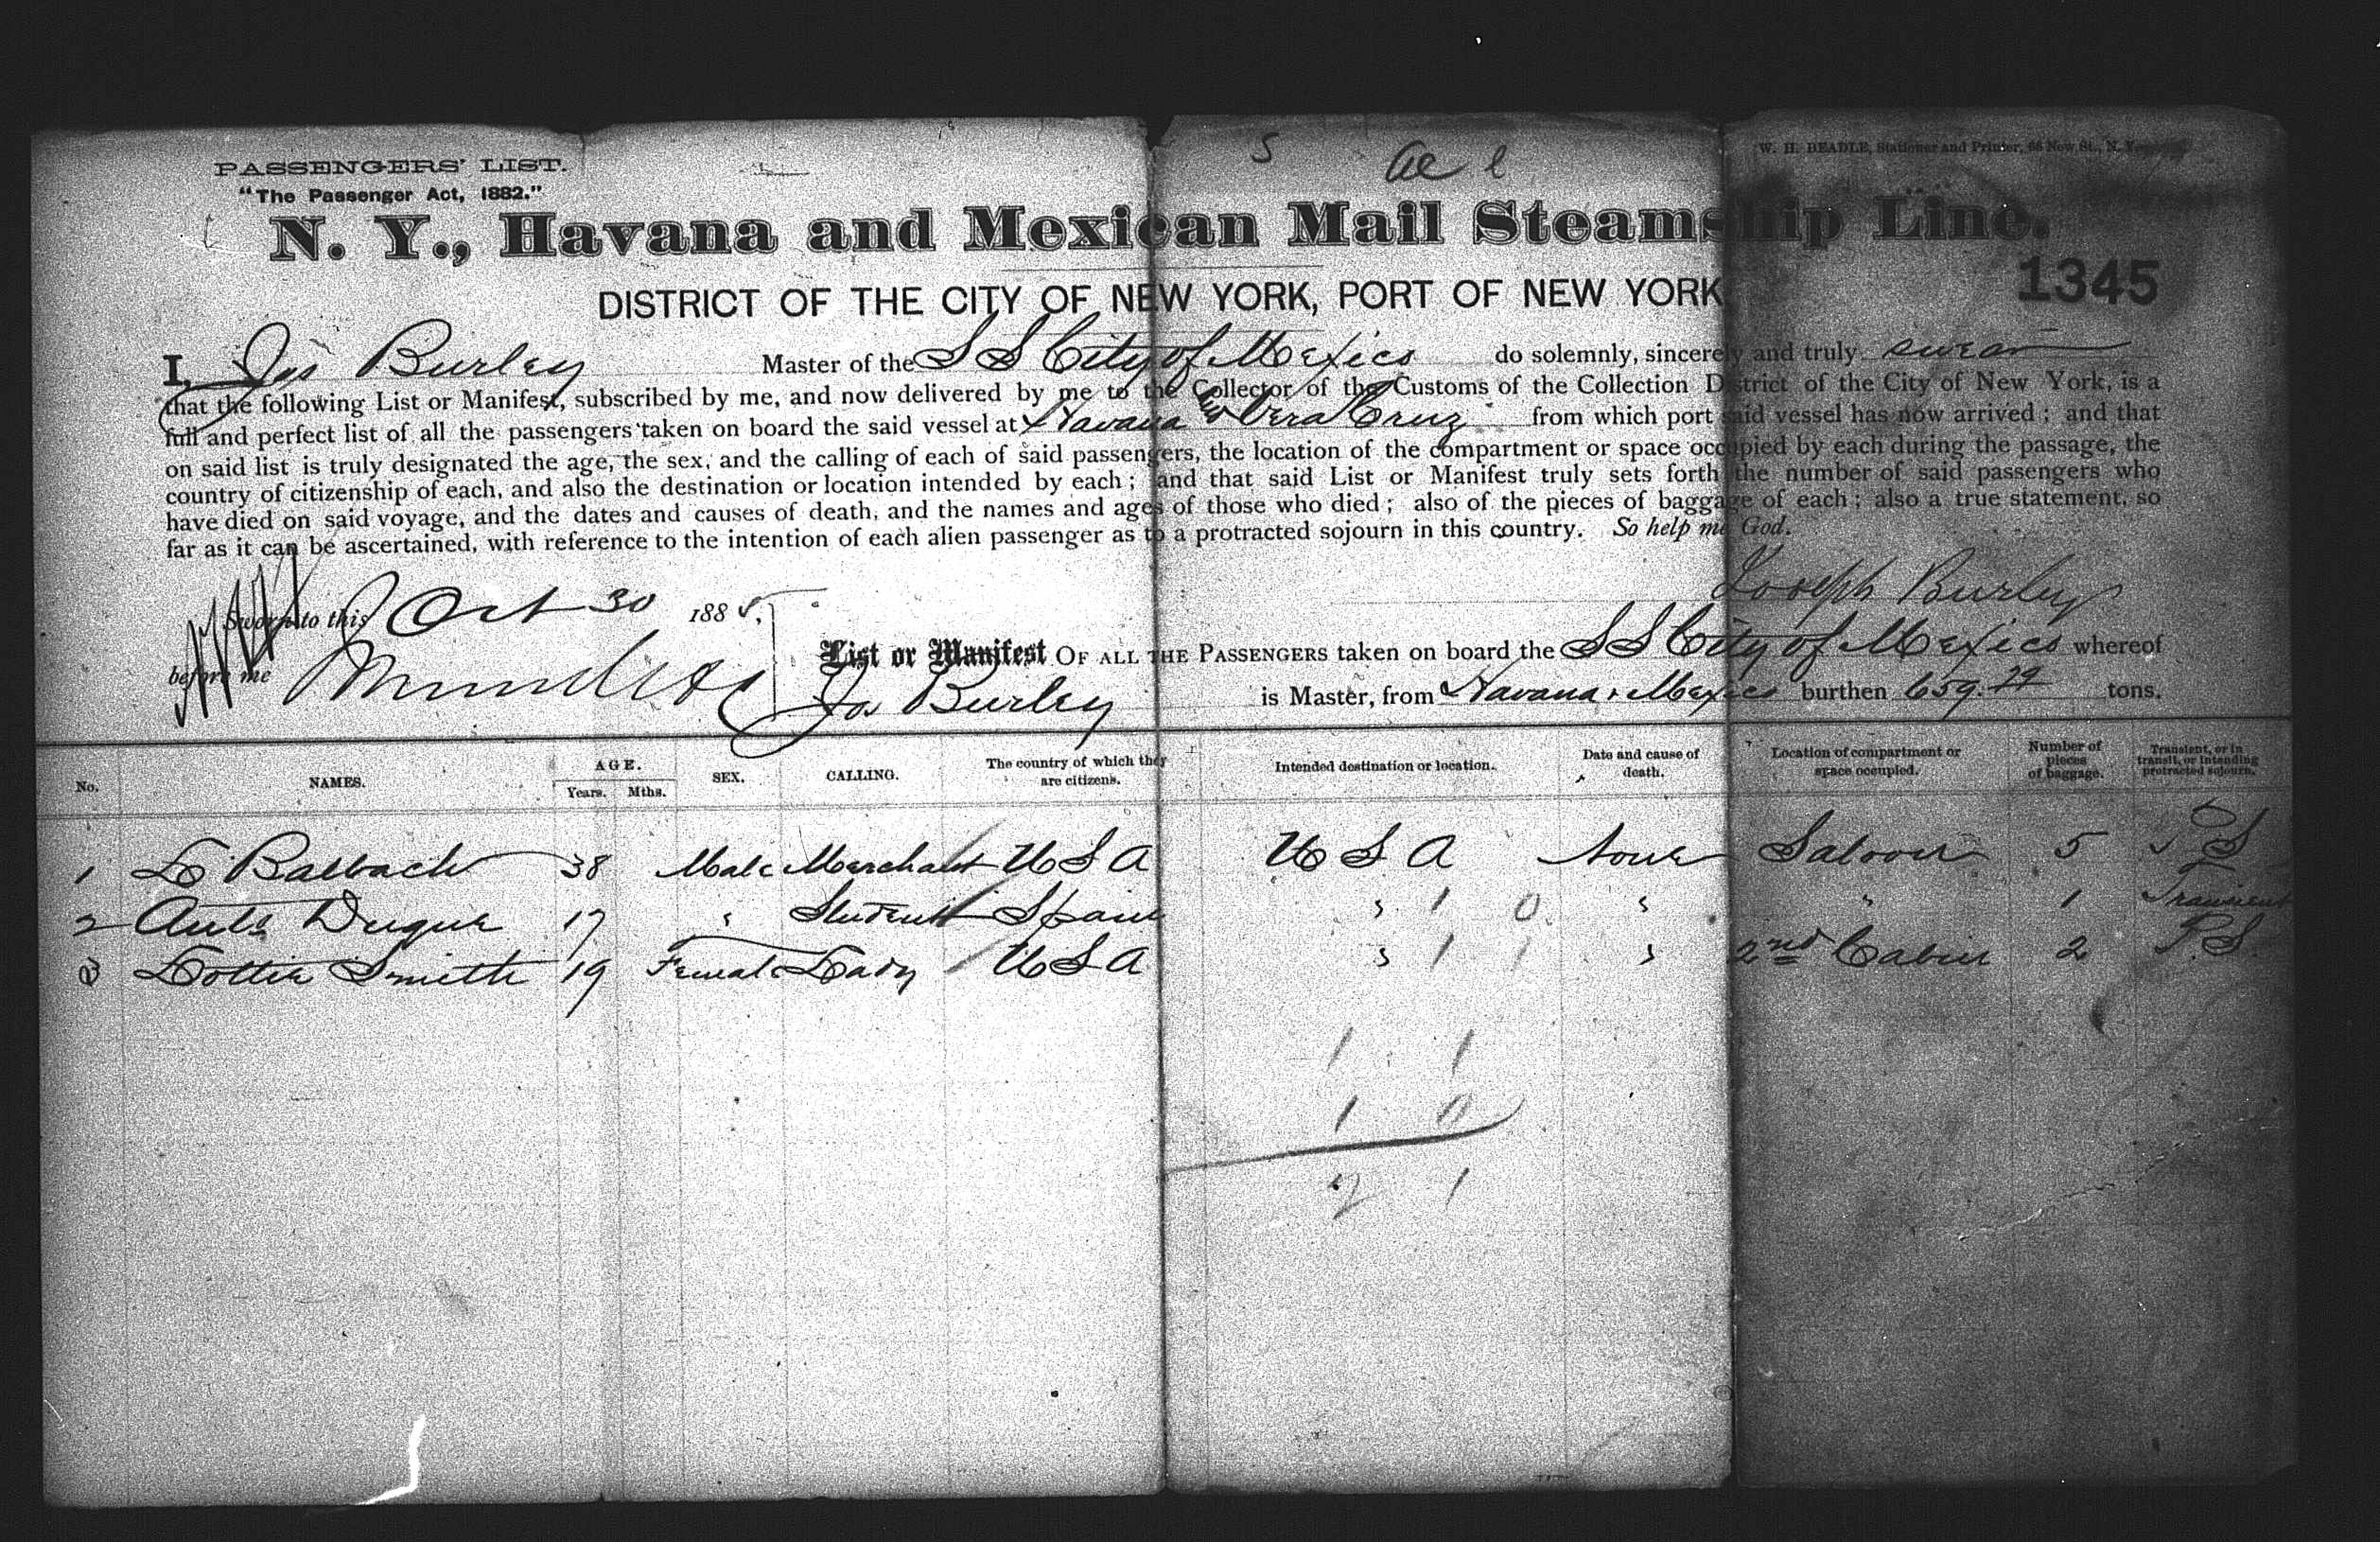 PASSENGERS' LIST.
"The Passenger Act, 1882."
W. H. BEADLE, Stationer and Printer, 66 New St., N. Y.
N. Y., Havana and Mexican Mail Steamship Line.
DISTRICT OF THE CITY OF NEW YORK, PORT OF NEW YORK.
1345
I, Jos Burley Master of the S S City of Mexico do solemnly, sincerely and truly swear
that the following List or Manifest, subscribed by me, and now delivered by me to the Collector of the Customs of the Collection District of the City of New York, is a
full and perfect list of all the passengers taken on board the said vessel at Havana & Vera Cruz from which port said vessel has now arrived; and that
on said list is truly designated the age, the sex, and the calling of each of said passengers, the location of the compartment or space occupied by each during the passage, the
country of citizenship of each, and also the destination or location intended by each; and that said List or Manifest truly sets forth the number of said passengers who
have died on said voyage, and the dates and causes of death, and the names and ages of those who died; also of the pieces of baggage of each; also a true statement, so
far as it can be ascertained, with reference to the intention of each alien passenger as to a protracted sojourn in this country. So help me God.
Joseph Burley
Sworn to this Oct 30 188
before me
List or Manifest OF ALL THE PASSENGERS taken on board the S S City of Mexico whereof
Jos Burley is Master, from Havana & Mexico burthen 659.29 tons.
No. NAMES. AGE. Years. Mths. SEX. CALLING. The country of which they are citizens. Intended destination or location. Date and cause of death. Location of compartment or space occupied. Number of pieces of baggage. Transient, or in transit, or intending protracted sojourn.
1 L Balbach 38 Male Merchant U S A U S A None Saloon 5 P S
2 Duque 17 " Student Spain " 1 0 " " 1 Transient
3 Lottie Smith 19 Female Lady U S A " 1 1 " 2nd Cabin 2 P.S.
1 1
1 0
2 1